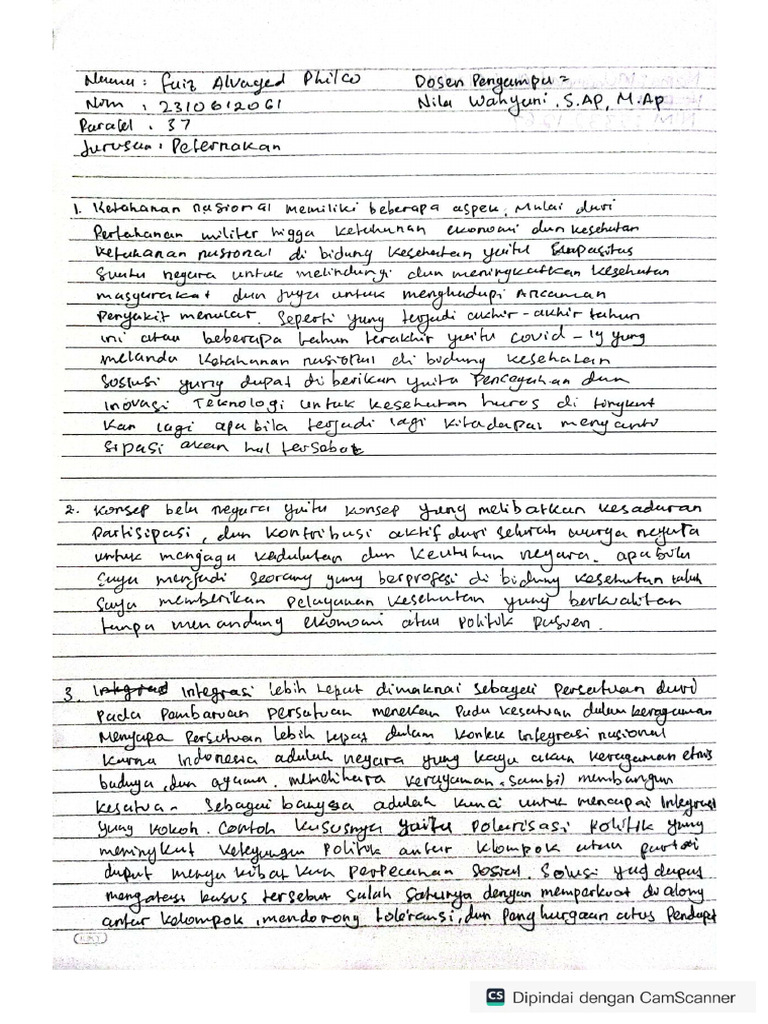 Nama : Faiz Alvaged Philco
Dosen Pengampu =
Nim : 2310612061
Nila Wahyuni, S.AP, M.Ap
Paralel : 37
Jurusan : Peternakan
1. Ketahanan nasional memiliki beberapa aspek. Mulai dari
Pertahanan militer higga ketahanan ekonomi dan kesehatan
ketahanan nasional di bidang kesehatan yaitu kapasitas
Suatu negara untuk melindungi dan meningkatkan kesehatan
masyarakat dan juga untuk menghadapi Ancaman
Penyakit menular. Seperti yang terjadi akhir-akhir tahun
ini atau beberapa tahun terakhir yaitu covid-19 yang
melanda Ketahanan nasional di bidang kesehatan
Soslusi yang dapat di berikan yaitu Pencegahan dan
Inovasi Teknologi untuk kesehatan harus di tingkat
Kan lagi apa bila terjadi lagi kita dapat menganti
sipasi akan hal tersebat
2. Konsep bela negara yaitu konsep yang melibatkan kesadaran
Partisipasi, dan kontribusi aktif dari seluruh warga negara
untuk menjaga kedaulatan dan keutuhan negara. apabila
Saya menjadi seorang yang berprofesi di bidang kesehatan
Saya memberikan pelayanan kesehatan yang berkualitan
tanpa menandung ekonomi atau politik pasien.
3. Integrasi lebih tepat dimaknai sebagai Persatuan dari
Pada Pambaruan persatuan menekan Pada kesatuan dalam keragaman
Mengapa Persatuan lebih tepat dalam kontek integrasi nasional
Karna Indonesia adalah negara yang kaya akan keragaman etnis
budaya, dan agama. memelihara keragaman sambil membangun
kesatuan Sebagai bangsa adalah kunci untuk mencapai Integrasi
Yang kokoh. Contoh kususnya yaitu polarisasi politik yang
meningkat ketegangan Politik antar klompok atau partai
dapat mengakibatkan perpecahan sosial. Solusi yag dapat
mengatasi kasus tersebut Salah Satunya dengan memperkuat dialong
antar kelompok, mendorong toleransi, dan Penghargaan atas Pendapt
CS Dipindai dengan CamScanner